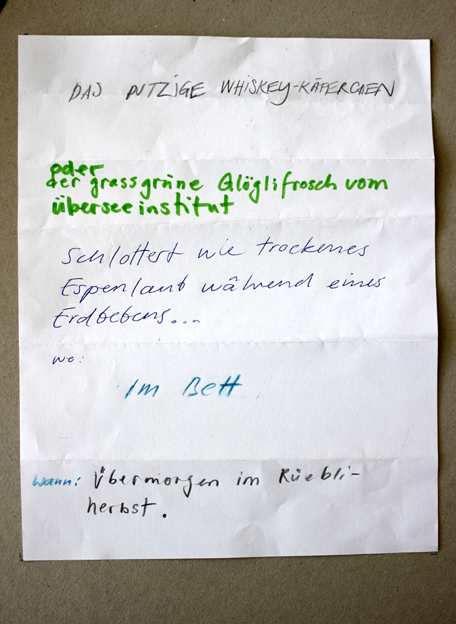 DAS PUTZIGE WHISKEY-KÄFERCHEN
oder
der grassgrüne Glöglifrosch vom
überseeinstitut
Schlottert wie trockenes
Espenlaub während eines
Erdbebens...
wo:
Im Bett
wann: Übermorgen im Rüebli-
herbst.